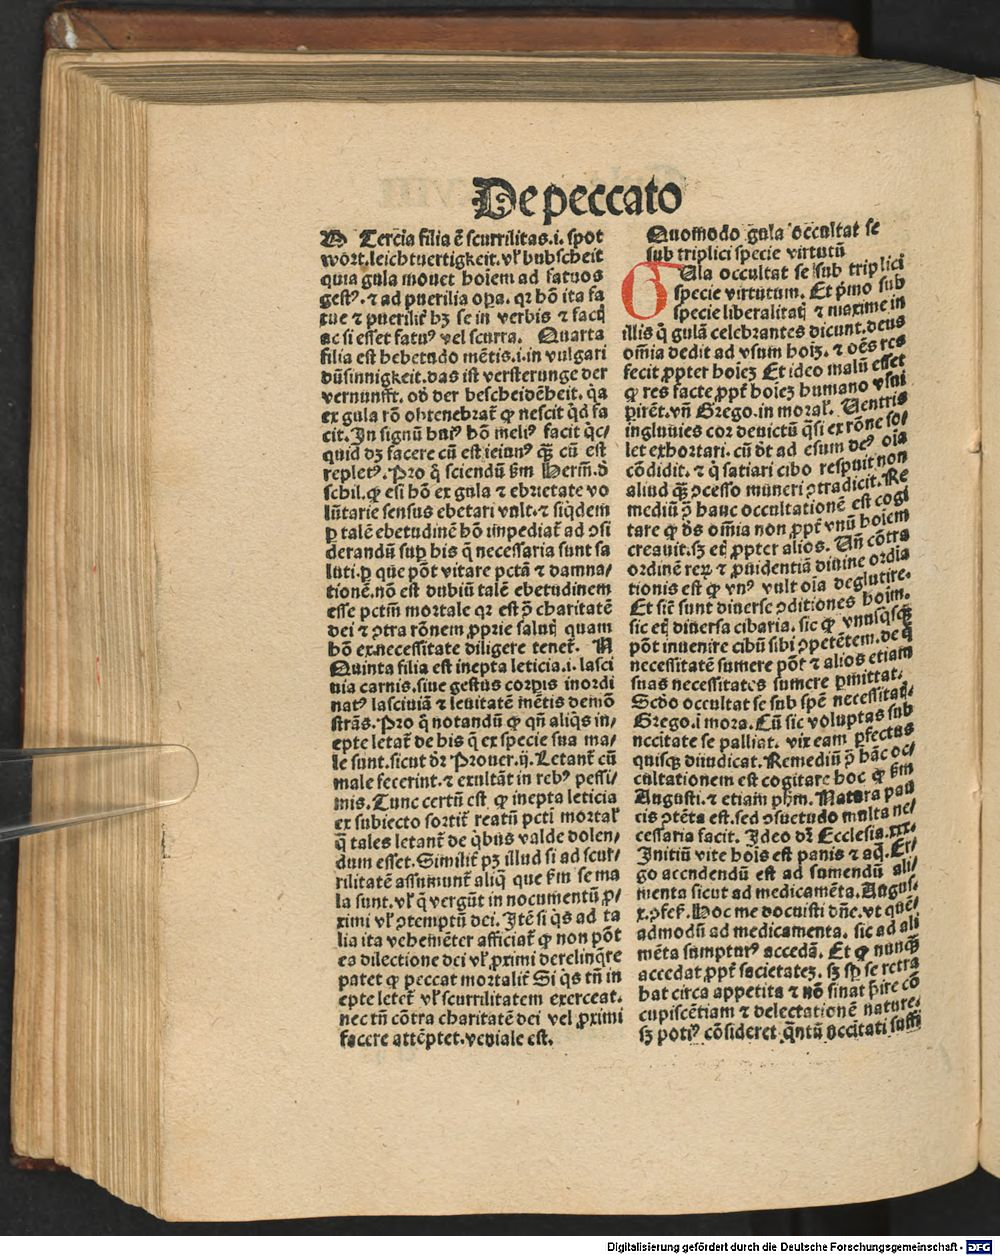 De peccato
M Tercia filia ē scurrilitas.i. spot
wort.leichtuertigkeit.vl' bubscheit
quia gula mouet hoiem ad fatuos
gestꝰ.⁊ ad puerilia oꝑa. qꝛ hō ita fa
tue ⁊ puerilit' hꝫ se in verbis ⁊ factꝭ
ac si esset fatuꝰ vel scurra. Quarta
filia est hebetudo mētis.i.in vulgari
dūsinnigkeit.das ist versterunge der
vernunfft. od' der bescheidēheit. q̄a
ex gula rō obtenebrat' ꝙ nescit qd fa
cit. In signū huiꝰ hō meliꝰ facit qc/
quid dꝫ facere cū est ieiunꝰ qꝫ cū est
repletꝰ. Pro q̄ sciendū ẜm Herm. d'
schil. ꝙ esi hō ex gula ⁊ ebrietate vo
lūtarie sensus ebetari vult.⁊ siqdem
ꝑ talē ebetudinē hō impediat' ad ɔsi
derandū suꝑ his q̄ necessaria sunt sa
luti.ꝑ que pōt vitare pctā ⁊ damna/
tionē.nō est dubiū talē ebetudinem
esse pctm̄ mortale qꝛ est ɔ̄ charitatē
dei ⁊ ɔtra rōnem ꝓprie salutꝭ quam
hō ex necessitate diligere tenet'. N
Quinta filia est inepta leticia.i. lasci
uia carnis.siue gestus corꝑis inordi
natꝰ lasciuiā ⁊ leuitatē mētis demō
strās. Pro q̄ notandū ꝙ qn̄ aliqs in/
epte letat' de his q̄ ex specie sua ma/
le sunt.sicut d'r Prouer.ij. Letant' cū
male fecerint.⁊ exultāt in rebꝰ pessi/
mis. Tunc certū est ꝙ inepta leticia
ex subiecto sortit' reatū pcti mortal'
q̄ tales letant' de qbus valde dolen/
dum esset. Similit' pꝫ illud si ad scur/
rilitatē assumunt' aliq̄ que ẜm se ma
la sunt. vl' q̄ vergūt in nocumentū ꝓ/
ximi vl' ɔtemptū dei. Itē si qs ad ta
lia ita vehemēter afficiat' ꝙ non pōt
ea dilectione dei vl' ꝓximi derelinqre
patet ꝙ peccat mortalit' Si qs tn̄ in
epte letet' vl' scurrilitatem exerceat.
nec tn̄ cōtra charitatē dei vel ꝓximi
facere attēptet.veniale est.
Quomodo gula occultat se
sub triplici specie virtutū
Gula occultat se sub triplici
specie virtutum. Et p̄mo sub
specie liberalitatꝭ ⁊ maxime in
illis q̄ gulā celebrantes dicunt.deus
om̄ia dedit ad vsum hoiꝫ. ⁊ oēs res
fecit ꝓpter hoieꝫ Et ideo malū esset
ꝙ res facte ꝓpt' hoieꝫ humano vsui
ꝑirēt.vn̄ Grego.in moral'. Uentris
ingluuies cor deuictū q̄si ex rōne so/
let exhortari. cū d't ad esum deꝰ oia
cōdidit. ⁊ q̄ satiari cibo respuit non
aliud qꝫ ɔcesso muneri ɔtradicit. Re
mediū ɔ̄ hanc occultationē est cogi
tare ꝙ d's om̄ia non ꝓpt' vnū hoiem
creauit.sꝫ etꝭ ꝓpter alios. Un̄ cōtra
ordinē reꝝ ⁊ ꝓuidentiā diuine ordia
tionis est ꝙ vnꝰ vult oia deglutire.
Et sic sunt diuerse ɔditiones hoim.
sic etꝭ diuersa cibaria. sic ꝙ vnusqsqꝫ
pōt inuenire cibū sibi ɔpetētem.de q̄
necessitatē sumere pōt ⁊ alios etiam
suas necessitates sumere ꝑmittat.
Scd̄o occultat se sub spē necessitatꝭ.
Grego.i mora. Cū sic voluptas sub
nccitate se palliat. vix eam ꝑfectus
quisqꝫ diiudicat. Remediū ɔ̄ hāc oc/
cultationem est cogitare hoc ꝙ ẜm
Augusti.⁊ etiam phm̄. Natura pau
cis ɔtēta est.sed ɔsuetudo multa ne/
cessaria facit. Ideo d'ꝛ Ecclesia.xxx.
Initiū vite hōis est panis ⁊ aq̄. Er/
go accndendū est ad sumendū ali/
menta sicut ad medicamēta. Augus.
x.ɔfes'. Hoc me docuisti dn̄e.vt quē/
admodū ad medicamenta. sic ad ali
mēta sumpturꝰ accedā. Et ꝙ nunqꝫ
accedat ꝓpt' societateꝫ. sꝫ sp̄ se retra
hat circa appetita ⁊ nō sinat p̄ire cō
cupiscētiam ⁊ delectationē nature.
sꝫ potiꝰ cōsideret q̄ntū nccitati suffi
Digitalisierung gefördert durch die Deutsche Forschungsgemeinschaft - DFG